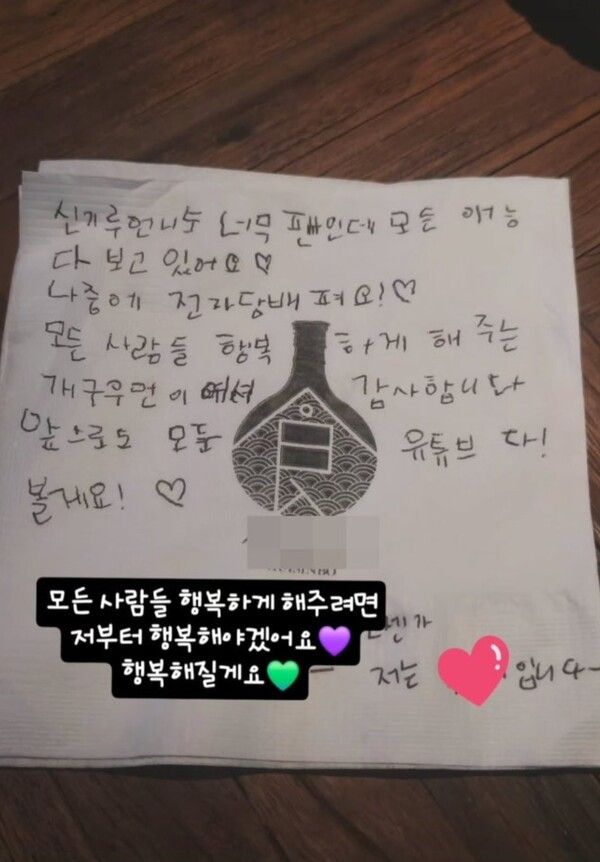 신기루언니도 너무 팬인데 모든 예능
다 보고 있어요♡
나중에 전자담배 펴요!♡
모든 사람들 행복 하게 해 주는
개구우먼이 감사합니다
앞으로도 모든 유튜브 다!
볼게요! ♡
모든 사람들 행복하게 해주려면
저부터 행복해야겠어요💜
행복해질게요💚
저는 입니다